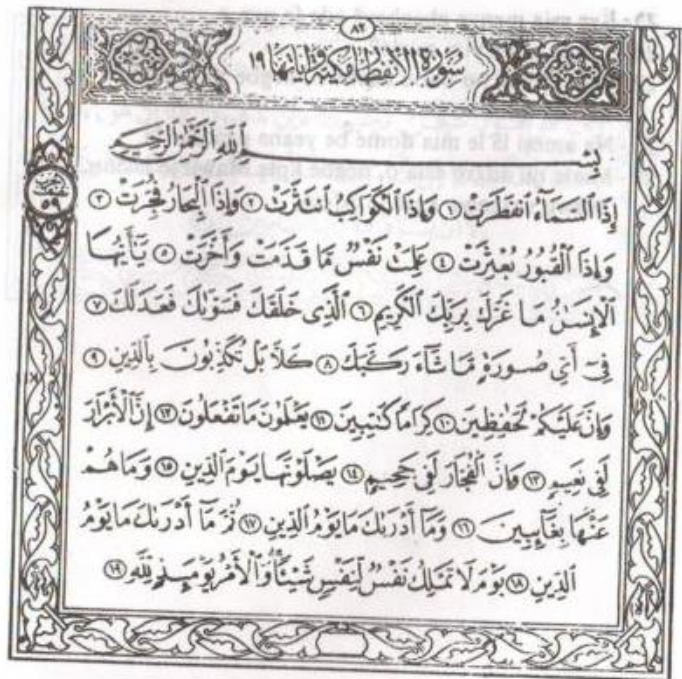 ٨٢
سُورَةُ الْانْفِطَارِ مَكِّيَّةٌ وَآيَاتُهَا ١٩
بِسْمِ اللَّهِ الرَّحْمَٰنِ الرَّحِيمِ
إِذَا ٱلسَّمَآءُ ٱنفَطَرَتْ ١ وَإِذَا ٱلْكَوَاكِبُ ٱنتَثَرَتْ ٢ وَإِذَا ٱلْبِحَارُ فُجِّرَتْ ٣
وَإِذَا ٱلْقُبُورُ بُعْثِرَتْ ٤ عَلِمَتْ نَفْسٌ مَّا قَدَّمَتْ وَأَخَّرَتْ ٥ يَٰٓأَيُّهَا
ٱلْإِنسَٰنُ مَا غَرَّكَ بِرَبِّكَ ٱلْكَرِيمِ ٦ ٱلَّذِى خَلَقَكَ فَسَوَّىٰكَ فَعَدَلَكَ ٧
فِىٓ أَىِّ صُورَةٍ مَّا شَآءَ رَكَّبَكَ ٨ كَلَّا بَلْ تُكَذِّبُونَ بِٱلدِّينِ ٩
وَإِنَّ عَلَيْكُمْ لَحَٰفِظِينَ ١٠ كِرَامًا كَٰتِبِينَ ١١ يَعْلَمُونَ مَا تَفْعَلُونَ ١٢ إِنَّ ٱلْأَبْرَارَ
لَفِى نَعِيمٍ ١٣ وَإِنَّ ٱلْفُجَّارَ لَفِى جَحِيمٍ ١٤ يَصْلَوْنَهَا يَوْمَ ٱلدِّينِ ١٥ وَمَا هُمْ
عَنْهَا بِغَآئِبِينَ ١٦ وَمَآ أَدْرَىٰكَ مَا يَوْمُ ٱلدِّينِ ١٧ ثُمَّ مَآ أَدْرَىٰكَ مَا يَوْمُ
ٱلدِّينِ ١٨ يَوْمَ لَا تَمْلِكُ نَفْسٌ لِّنَفْسٍ شَيْـًٔا وَٱلْأَمْرُ يَوْمَئِذٍ لِّلَّهِ ١٩